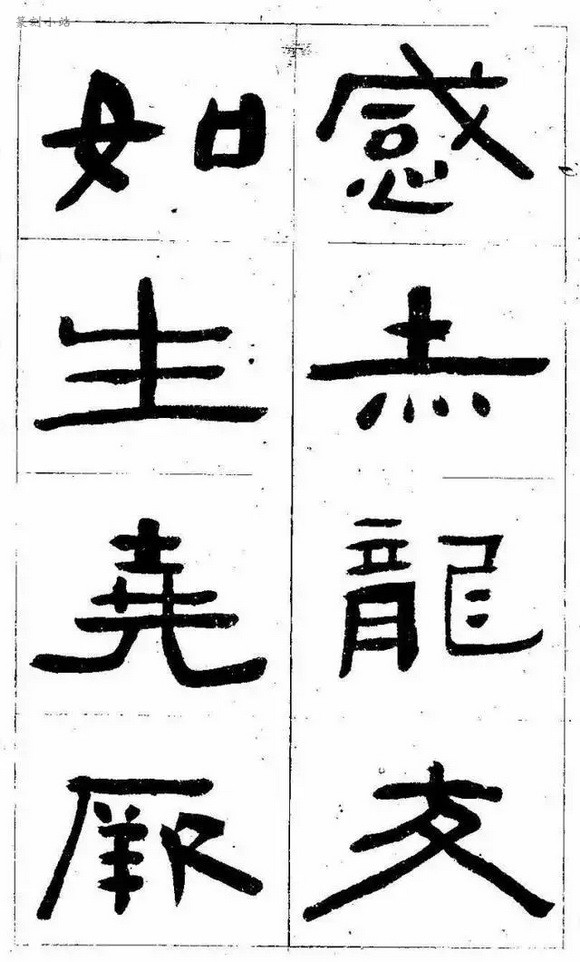 篆刻小站
感赤龍交
如生堯厥